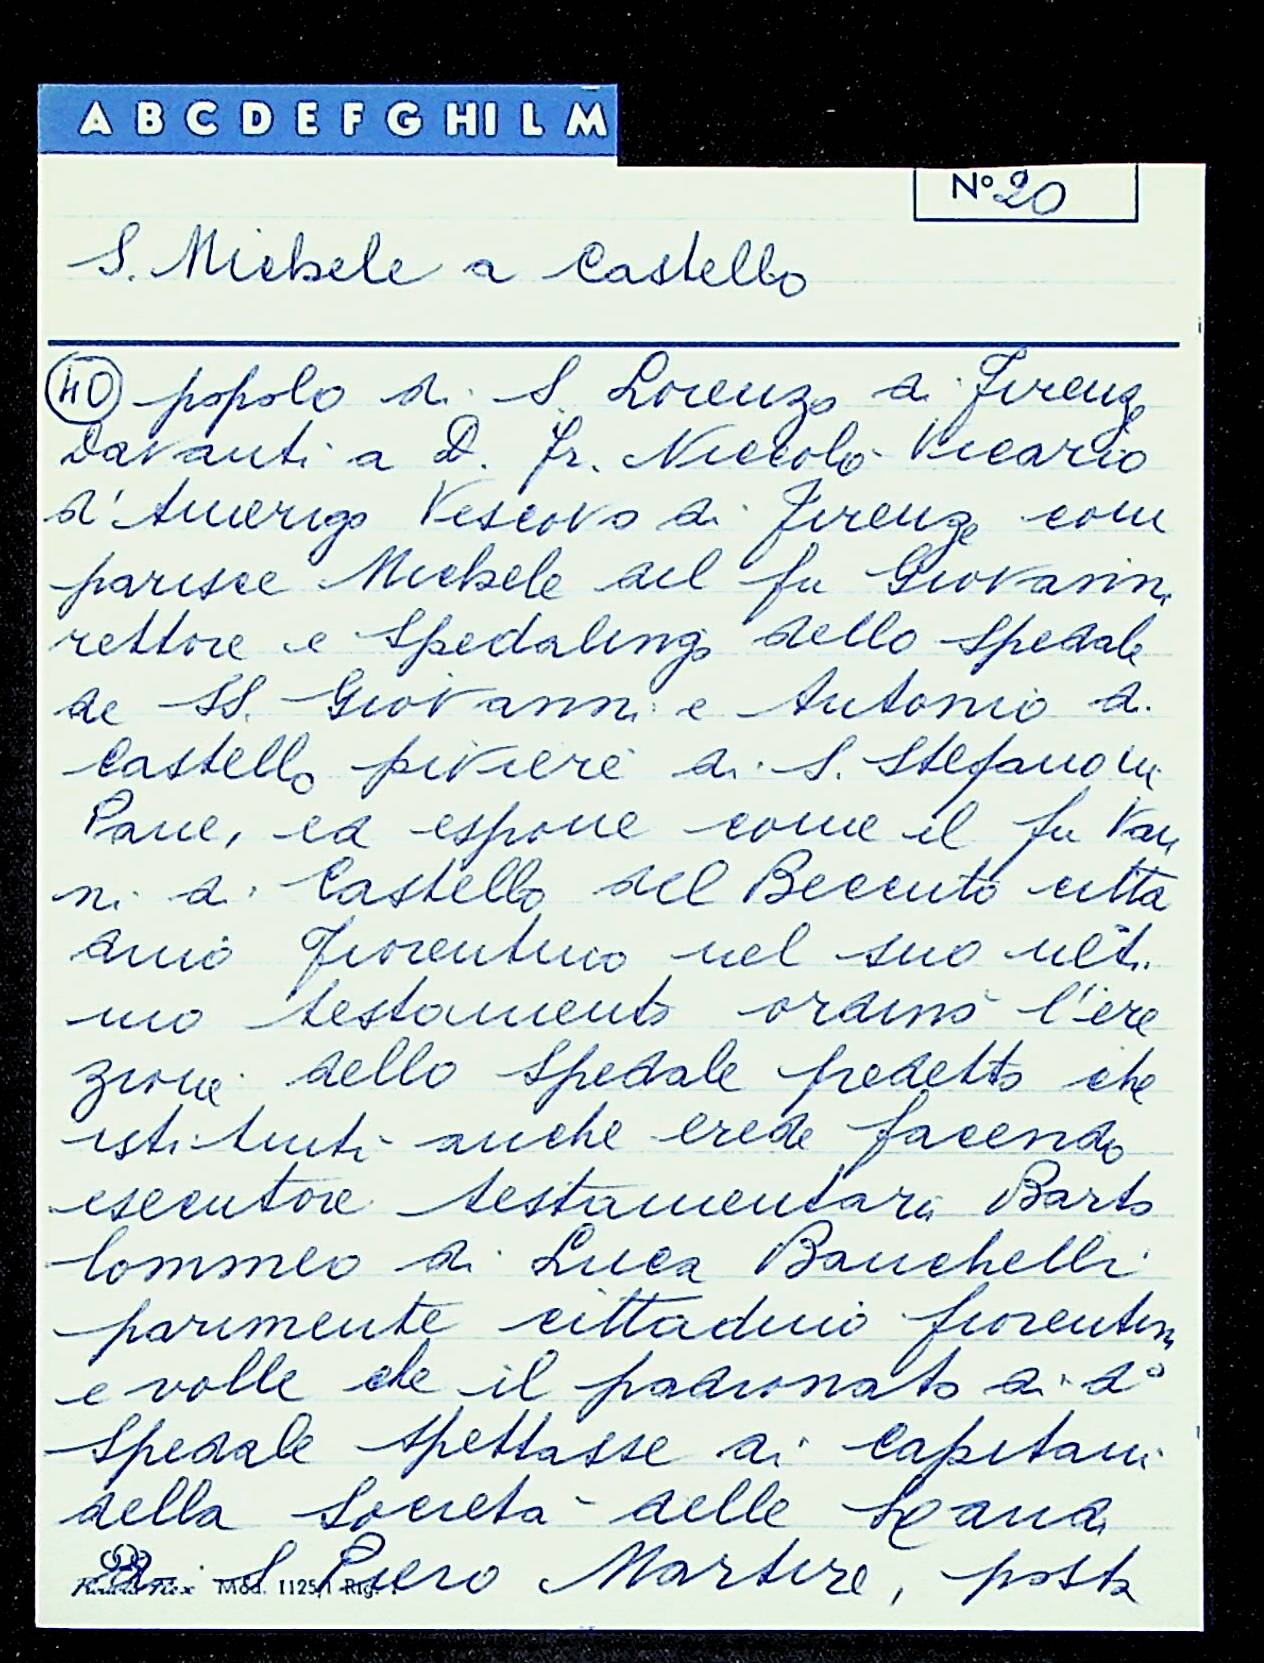 A B C D E F G HI L M
N° 20
S. Michele a Castello
40 popolo di S. Lorenzo di Firenze
Davanti a D. Fr. Niccolò Vicario
d'Amerigo Vescovo di Firenze com
parisce Michele del fu Giovanni
rettore e Spedalingo dello Spedale
de SS. Giovanni e Antonio di
Castello piviere di S. Stefano in
Pane, ed espone come il fu Van
ni di Castello del Beccuto citta
dino fiorentino nel suo ulti
mo testamento ordinò l'ere
zione dello Spedale predetto che
istituì anche erede facendo
esecutore testamentari Barto
lommeo di Luca Banchelli
parimente cittadino fiorentino
e volle che il padronato di d°
Spedale spettasse ai Capitani
della Società delle
di S. Piero Martire, posta
Mod. 1125/1 Rig.